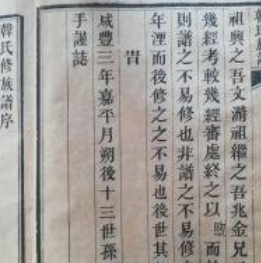 韓氏族譜
祖興之吾文瀚祖繼之吾兆金兄
幾經考較幾經審處終之以敗而
則譜之不易修也非譜之不易修
年湮而後修之之不易也後世其
旹
咸豐三年嘉平月朔後十三世孫
手謹誌
韓氏修族譜序